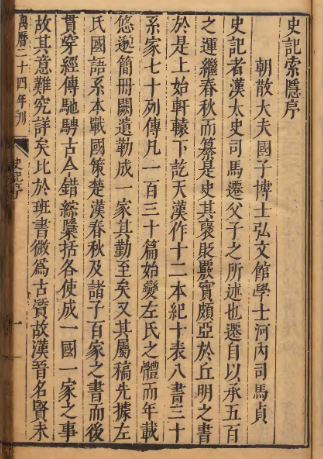 史記索隱序
朝散大夫國子博士弘文館學士河内司馬貞
史記者漢太史司馬遷父子之所述也遷自以承五百
之運繼春秋而纂是史其褒貶覈實頗亞於丘明之書
於是上始軒轅下訖天漢作十二本紀十表八書三十
系家七十列傳凡一百三十篇始變左氏之體而年載
悠邈簡冊闕遺勒成一家其勤至矣又其屬稿先據左
氏國語系本戰國策楚漢春秋及諸子百家之書而後
貫穿經傳馳騁古今錯綜檃括各使成一國一家之事
故其意難究詳矣比於班書微為古質故漢晉名賢未
萬曆二十四年刊
史記序
一